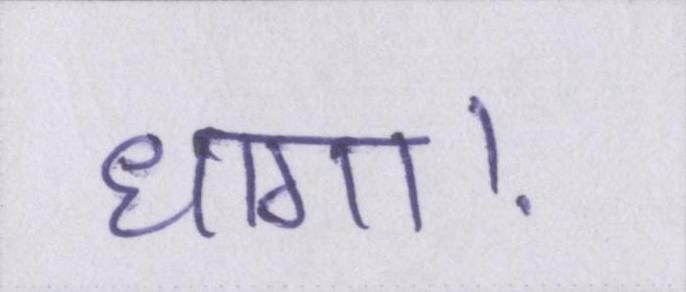 धागा।.